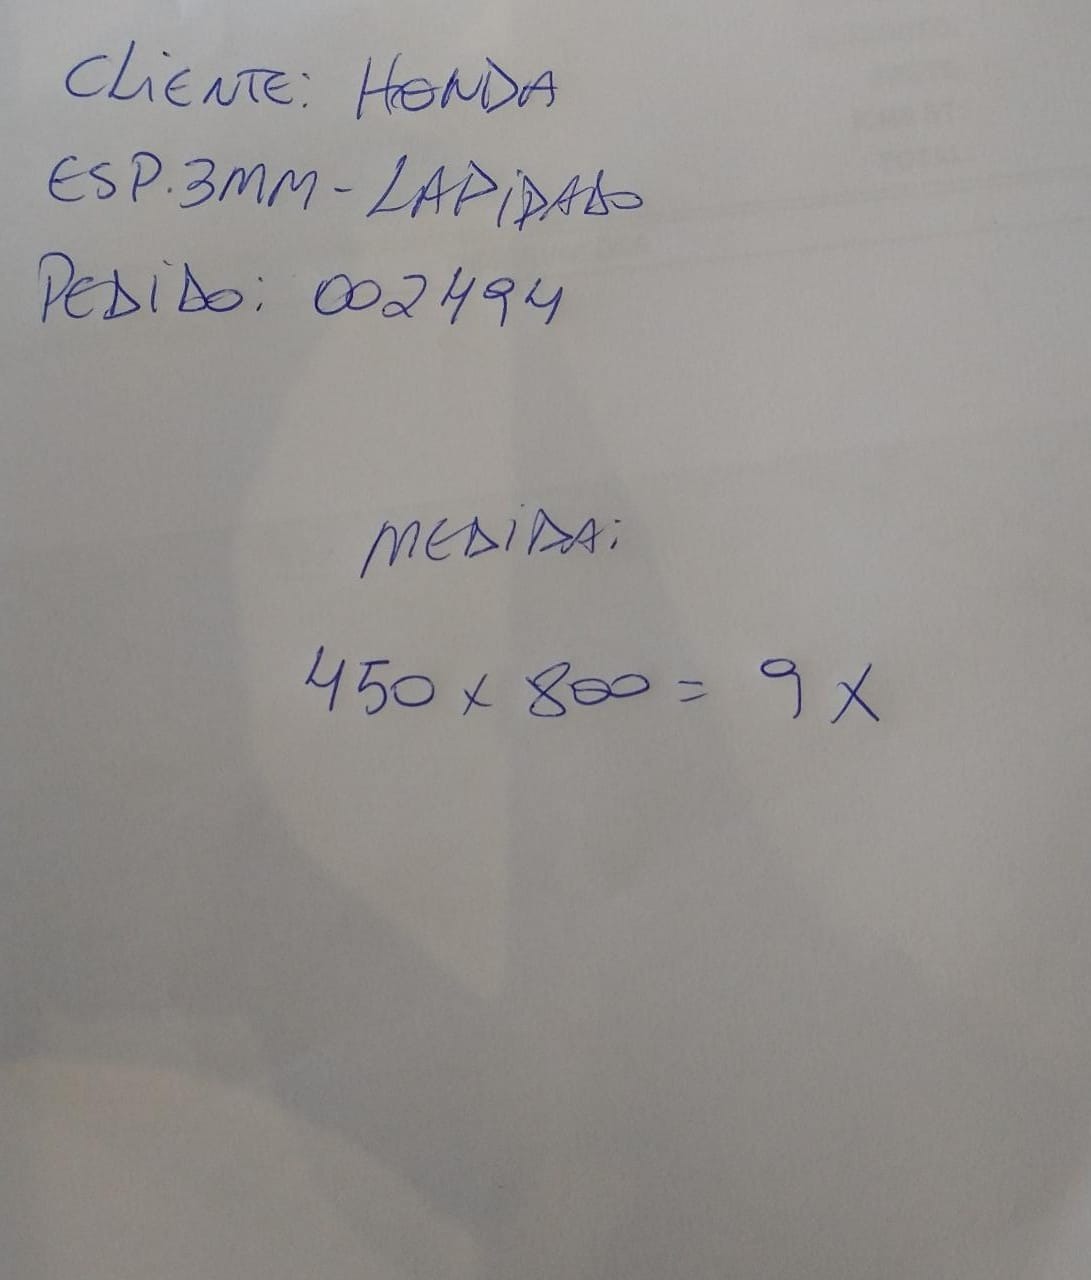 CLIENTE: HONDA
ESP. 3MM - LAPIDADO
PEDIDO: 002494
MEDIDA:
450 x 800 = 9 X